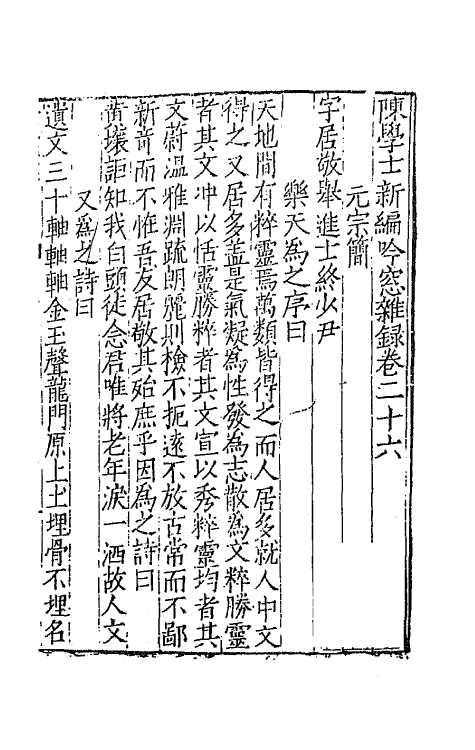 陳學士新編吟窓雜録卷二十六
元宗簡
字居敬舉進士終少尹
樂天為之序曰
天地間有粹靈焉萬類皆得之而人居多就人中文
得之又居多蓋是氣凝為性發為志散為文粹勝靈
者其文冲以恬靈勝粹者其文宣以秀粹靈均者其
文蔚温雅淵疏朗麗則檢不扼逺不放古常而不鄙
新竒而不恠吾友居敬其殆庶乎因為之詩曰
黄壤詎知我白頭徒念君唯將老年淚一洒故人文
又爲之詩曰
遺文三十軸軸軸金玉聲龍門原上土埋骨不埋名